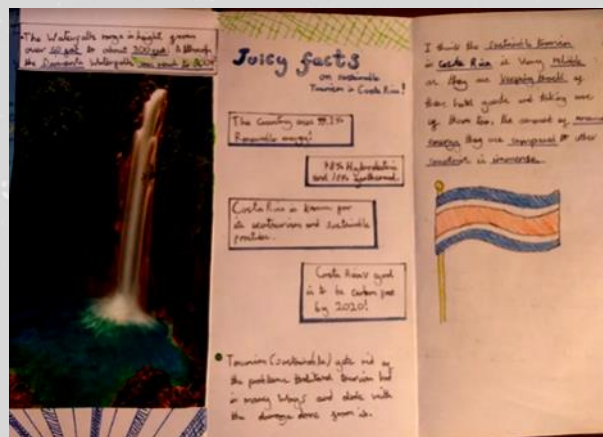 •The Waterfalls range in height from
over 50 feet to about 300 feet. Although
the Diamante Waterfalls can reach to
Juicy facts
on sustainable
Tourism in Costa Rica!
The Country uses 99.2%
Renewable energy!
78% Hydroelectric
and 10% geothermal.
Costa Rica is known for
its ecotourism and sustainable
practices.
Costa Rica's goal
is to be carbon free
by 2020!
• Tourism (sustainable) gets rid of
the problems traditional tourism has
in many ways and deals with
the damage done from it.
I think the sustainable tourism
in Costa Rica is Very reliable
as they are keeping track of
their hotel guests and taking care
of them too, the amount of
energy they use compared to other
countries is immense.